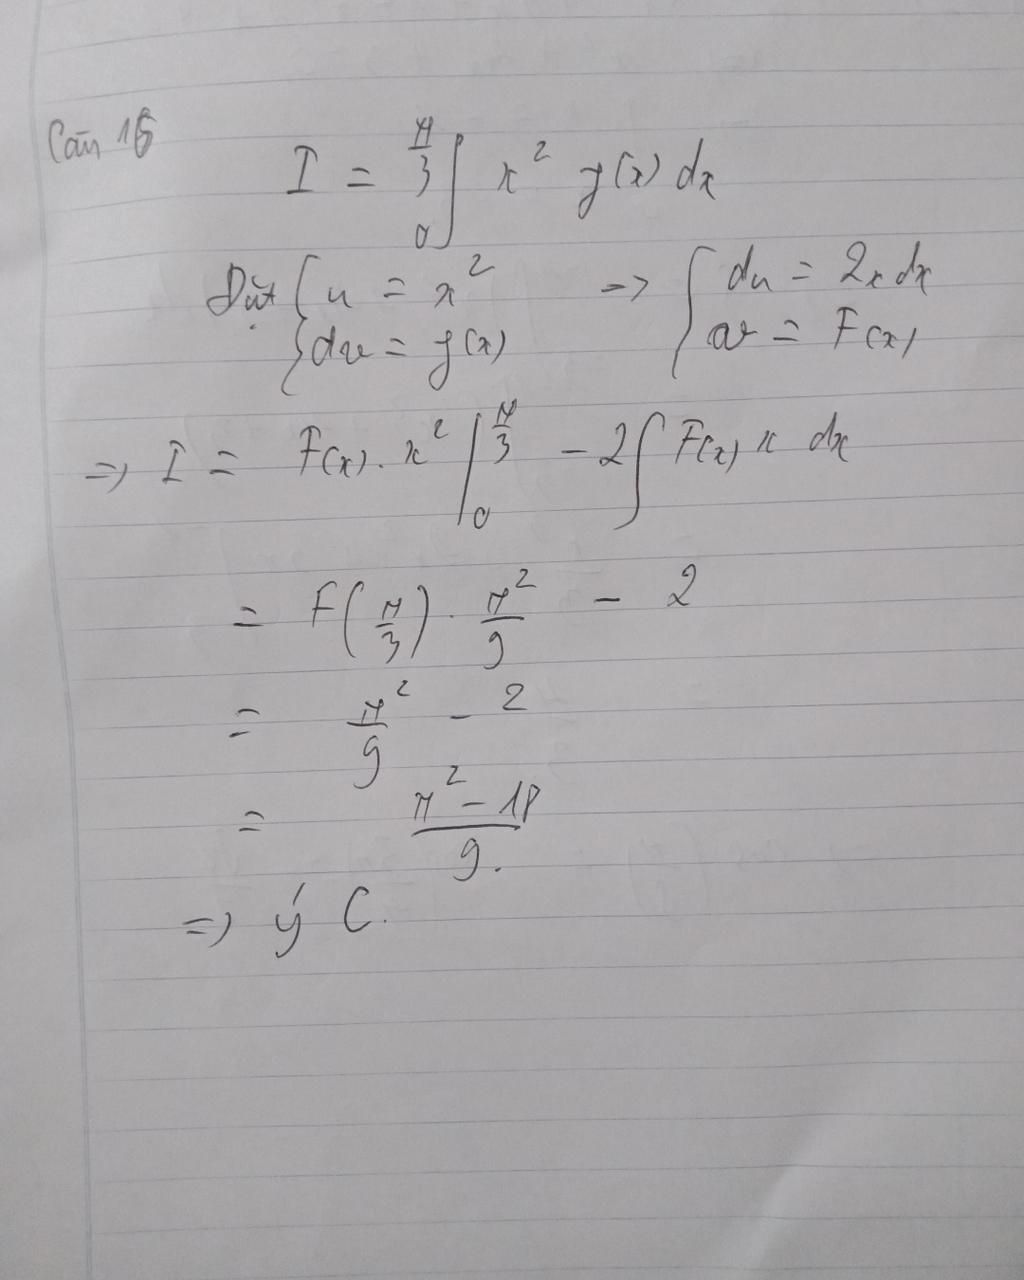 Câu 16
I = ∫₀^{π/3} x² f(x) dx
Đặt { u = x² => { du = 2x dx
{ dv = f(x) { v = F(x)
=> I = F(x). x² |₀^{π/3} - 2∫ F(x) x dx
= F(π/3) . π²/9 - 2
= π²/9 - 2
= (π² - 18)/9.
=> ý C.